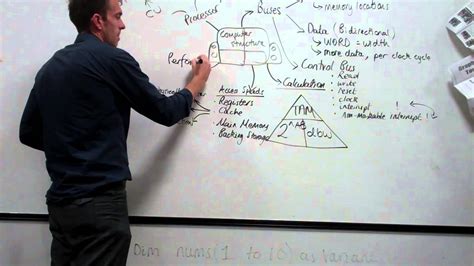 Processor
Buses
memory locations
Computer
structure
Data (Bidirectional)
WORD = width
more data per clock cycle
Perfor
Control Bus
Read
write
reset
clock
interrupt
Non-maskable interrupt
Calculation
Access Speeds
Registers
Cache
Main Memory
Backing Storage
TAM
2^AB
dbw
Dim nums(1 to 10) as variant